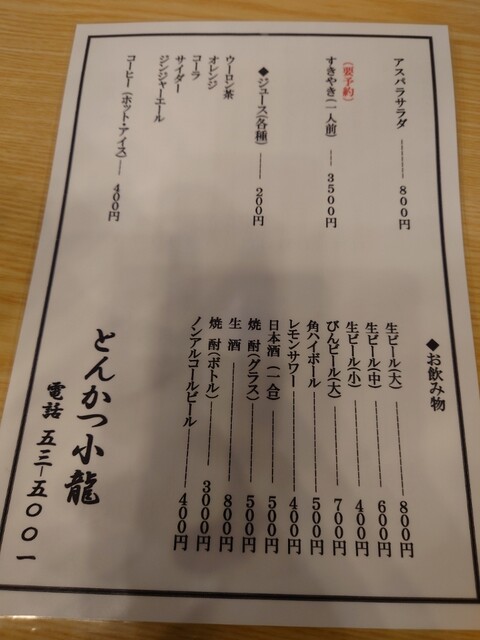 アスパラサラダ 800円
(要予約)
すきやき(一人前) 3500円
◆ジュース(各種) 200円
ウーロン茶
オレンジ
コーラ
サイダー
ジンジャーエール
コーヒー(ホット・アイス) 400円
◆お飲み物
生ビール(大) 800円
生ビール(中) 600円
生ビール(小) 400円
びんビール(大) 700円
角ハイボール 500円
レモンサワー 400円
日本酒(一合) 500円
焼酎(グラス) 500円
生酒 800円
焼酎(ボトル) 3000円
ノンアルコールビール 400円
とんかつ小龍
電話 五三-五〇〇一